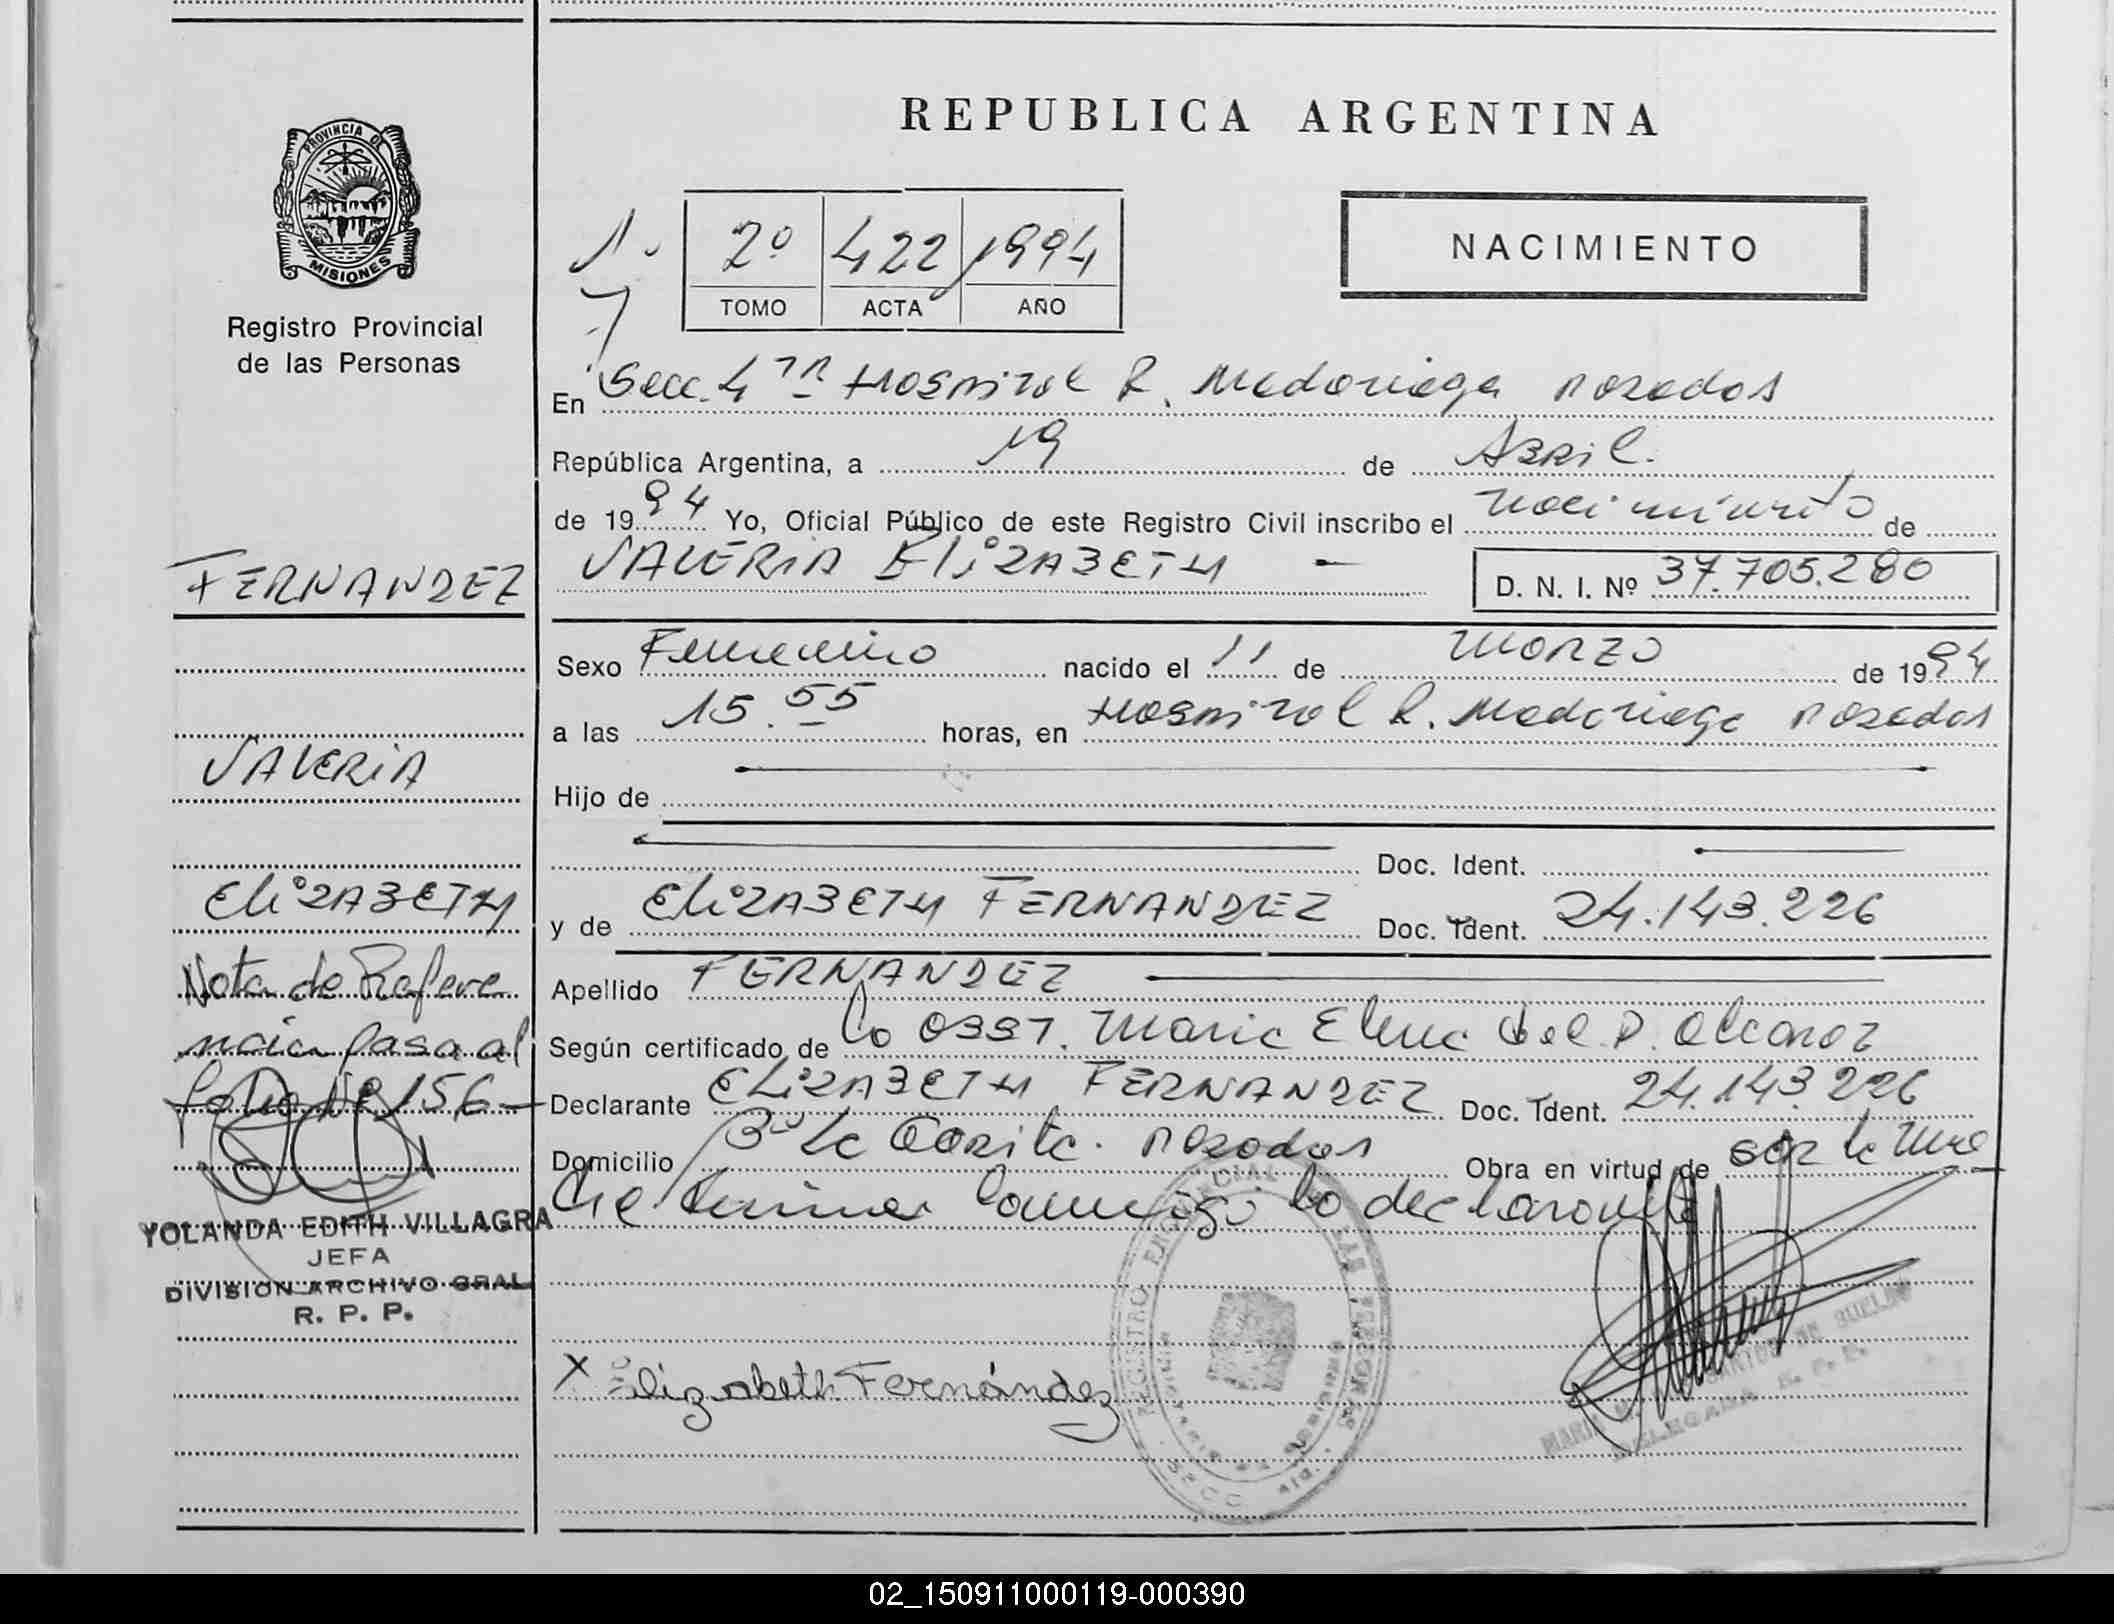 REPUBLICA ARGENTINA
PROVINCIA DE
MISIONES
Registro Provincial
de las Personas
2º 422 1994
TOMO ACTA AÑO
NACIMIENTO
En Secc. 4 Hospital R. Madariaga Posadas
República Argentina, a 19 de Abril.
de 1994 Yo, Oficial Público de este Registro Civil inscribo el nacimiento de
VALERIA ELIZABETH - D. N. I. Nº 37.705.280
Sexo Femenino nacido el 11 de marzo de 1994
a las 15.55 horas, en Hospital R. Madariaga Posadas
Hijo de
Doc. Ident.
y de ELIZABETH FERNANDEZ Doc. Ident. 24.143.226
Apellido FERNANDEZ
Según certificado de la Obst. Maria Elena del P. Alcaraz
Declarante ELIZABETH FERNANDEZ Doc. Ident. 24.143.226
Domicilio Bº Posadas Obra en virtud de ser la
conmigo la declarante
X Elizabeth Fernández
FERNANDEZ
VALERIA
ELIZABETH
Nota de Refere
ncia pasa al
folio Nº 156-
YOLANDA EDITH VILLAGRA
JEFA
DIVISION ARCHIVO GRAL
R. P. P.
02_150911000119-000390